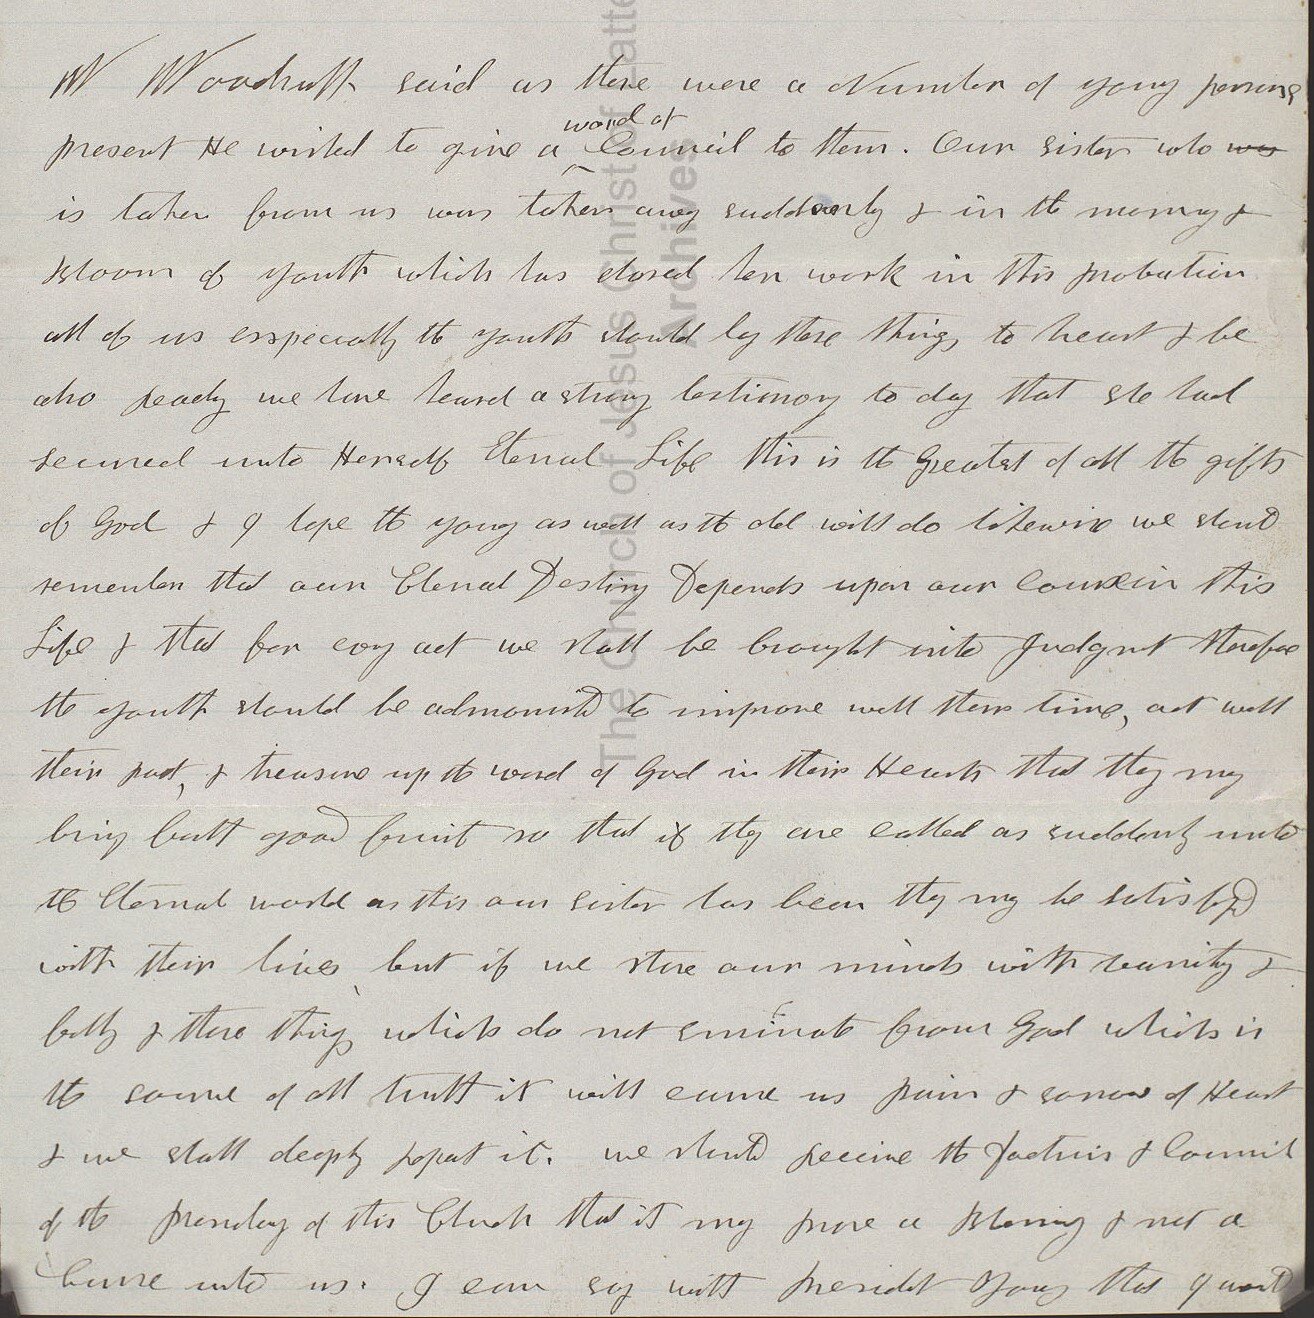 W Woodruff said as there were a Number of young persons
present He wished to give a word of Council to them. Our sister who was
is taken from us was taken away suddenly & in the morning &
bloom of youth which has closed her work in this probation
all of us esspecially the youth should lay these things to heart & be
also ready we have heard a strong testimony to day that she had
secured unto Herself Eternal Life this is the greatest of all the gifts
of God & I hope the young as well as the old will do likewise we should
remember that our Eternal Destiny Depends upon our course in this
Life & that for evry act we shall be brought into Judgmt therefore
the youth should be admonishd to improve well their time, act well
their part, & treasure up the word of God in their Hearts that they may
bring forth good fruit so that if they are called as suddenly unto
the Eternal world as this our sister has been they may be satisfyd
with their lives, but if we store our minds with vanity &
folly & those things which do not eminate from God which is
the source of all truth it will cause us pain & sorrow of Heart
& we shall deeply repent it. we should receive the Doctrin & Council
of the Presidency of this Church that it may prove a blessing & not a
Curse unto us. I can say with President Young that I want